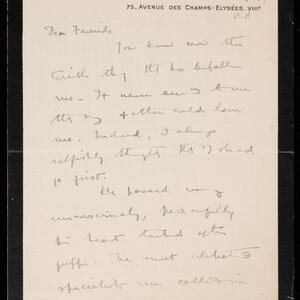 75, AVENUE DES CHAMPS-ELYSÉES. VIIIᵉ
Dear Friends
You know now the
terrible thing that has befallen
me. It never seemed to me
that any other could leave
me. Indeed, I always
selfishly thought that I should
go first.
He passed away
unconsciously, peacefully
his heart tired after
grippe. The most celebrated
specialists were called in